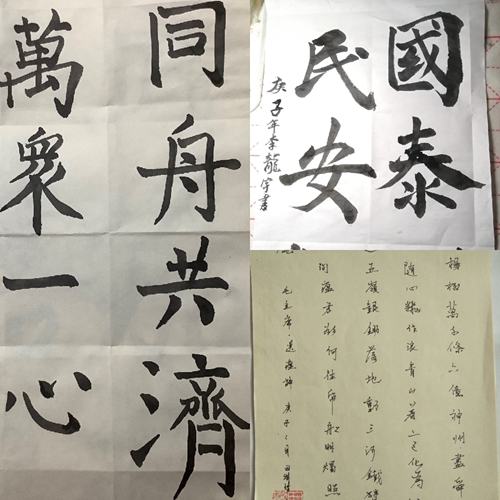 同舟共濟
萬眾一心
國泰
民安
庚子年李龍宇書
楊柳萬千條六億神州盡舜
隨心翻作浪青山着意化為
五嶺銀鋤落地動三河鐵
問瘟君欲何往紙船明燭照
毛主席送瘟神 庚子